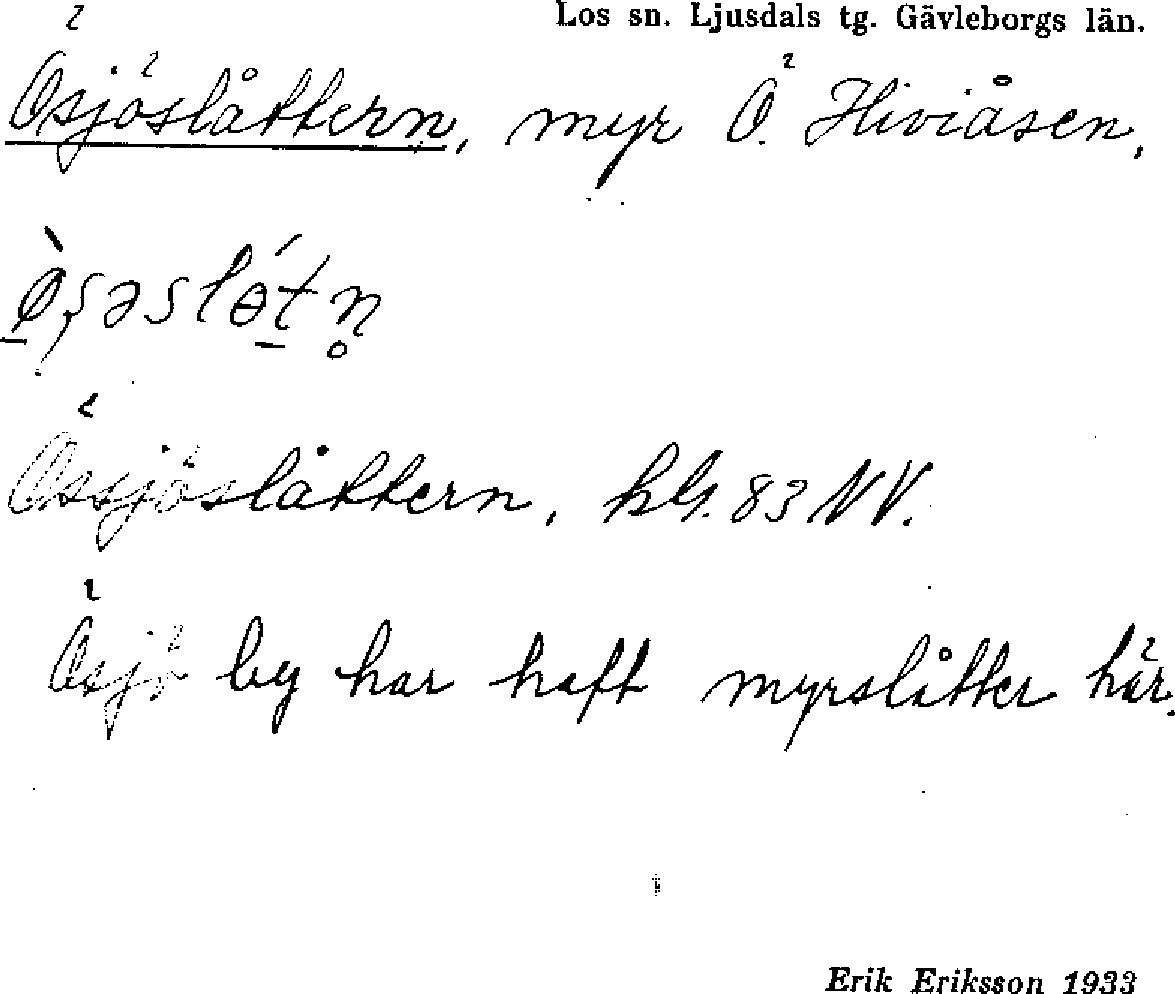 Los sn. Ljusdals tg. Gävleborgs län.
Ösjöslåttern, myr Ö. Hiviåsen,
Össjöslåttern, 83 NV.
Ösjö by har haft myrslåtter här.
Erik Eriksson 1933